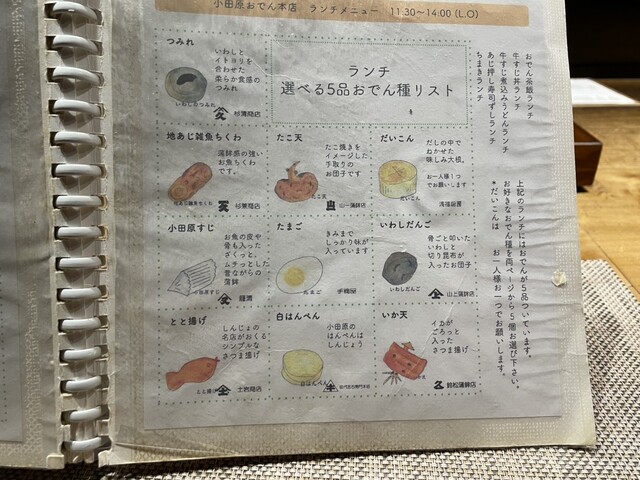 小田原おでん本店 ランチメニュー 11:30~14:00(L.O)
ランチ
選べる5品おでん種リスト
つみれ
いわしと
イトヨリを
合わせた
柔らか食感の
つみれ
いわしのつみれ
杉兼商店
地あじ雑魚ちくわ
薄鉾感の強い
お魚ちくわ
です。
杉兼商店
たこ天
たこ焼きを
イメージした
手取りの
お団子です
たこ天
山一蒲鉾店
だいこん
だしの中で
ねかせた
味しみ大根。
お一人様1つ
でお願いします
だいこん
小田原すじ
お魚の皮や
骨も入った
ざくっと、
ムチっとした
昔ながらの
蒲鉾
小田原すじ
籠清
たまご
きみまで
しっかり味が
入っています
たまご
いわしだんご
骨ごと叩いた
いわしと
切り昆布が
入ったお団子
いわしだんご
山上蒲鉾店
とと揚げ
しんじょの
名店がおくる
シンプルな
さつま揚げ
とと揚げ
土岩商店
白はんぺん
小田原の
はんぺんは
しんじょう
白はんぺん
いか天
イカが
ごろっと
入った
さつま揚げ
鈴松蒲鉾店
おでん茶飯ランチ
牛すじ丼ランチ
牛すじ煮込みうどんランチ
あじ押し寿司ずしランチ
ちまきランチ
上記のランチにはおでんが5品ついています。
お好きなおでん種を両ページから5個お選び下さい。
*だいこんは お一人様お一つでお願いします。